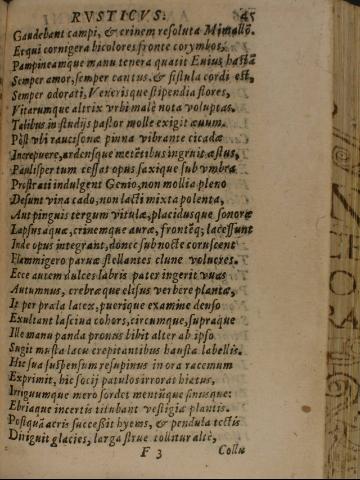 RVSTICVS. 45
Gaudebant campi, & crinem resoluta Mimallō.
Et qui cornigera bicolores fronte corymbos,
Pampineamque manu tenera quatit Euius hastā
Semper amor, semper cantus, & fistula cordi est,
Semper odorati, Venerisque stipendia flores,
Vitarumque altrix vrbi malè nota voluptas.
Talibus in studijs pastor molle exigit æuum.
Pòst vbi raucisonæ pinna vibrante cicadæ
Increpuere, ardensque metētibus ingruit æstus,
Paulisper tum cessat opus saxique sub vmbra
Prostrati indulgent Genio, non mollia pleno
Desunt vina cado, non lacti mixta polenta,
Aut pinguis tergum vitulæ, placidusque sonoræ
Lapsus aquæ, crinemque auræ, frontēq; lacessunt
Inde opus integrant, donec sub nocte coruscent
Flammigero paruæ stellantes clune volucres.
Ecce autem dulces labris pater ingerit vuas
Autumnus, crebraque elisus verbere plantæ,
It per prala latex, puerique examine denso
Exultant lasciua cohors, circumque, supraque
Ille manu panda pronus bibit alter ab ipso
Sugit musta lacu crepitantibus hausta labellis.
Hic sua suspensum resupinus in ora racemum
Exprimit, hic socij patulos irrorat hiatus,
Irriguumque mero sordet mentūque sinusque:
Ebriaque incertis titubant vestigia plantis.
Postquā acris successit hyems, & pendula tectis
Diriguit glacies, larga strue collitur altè,
F 3 Collu